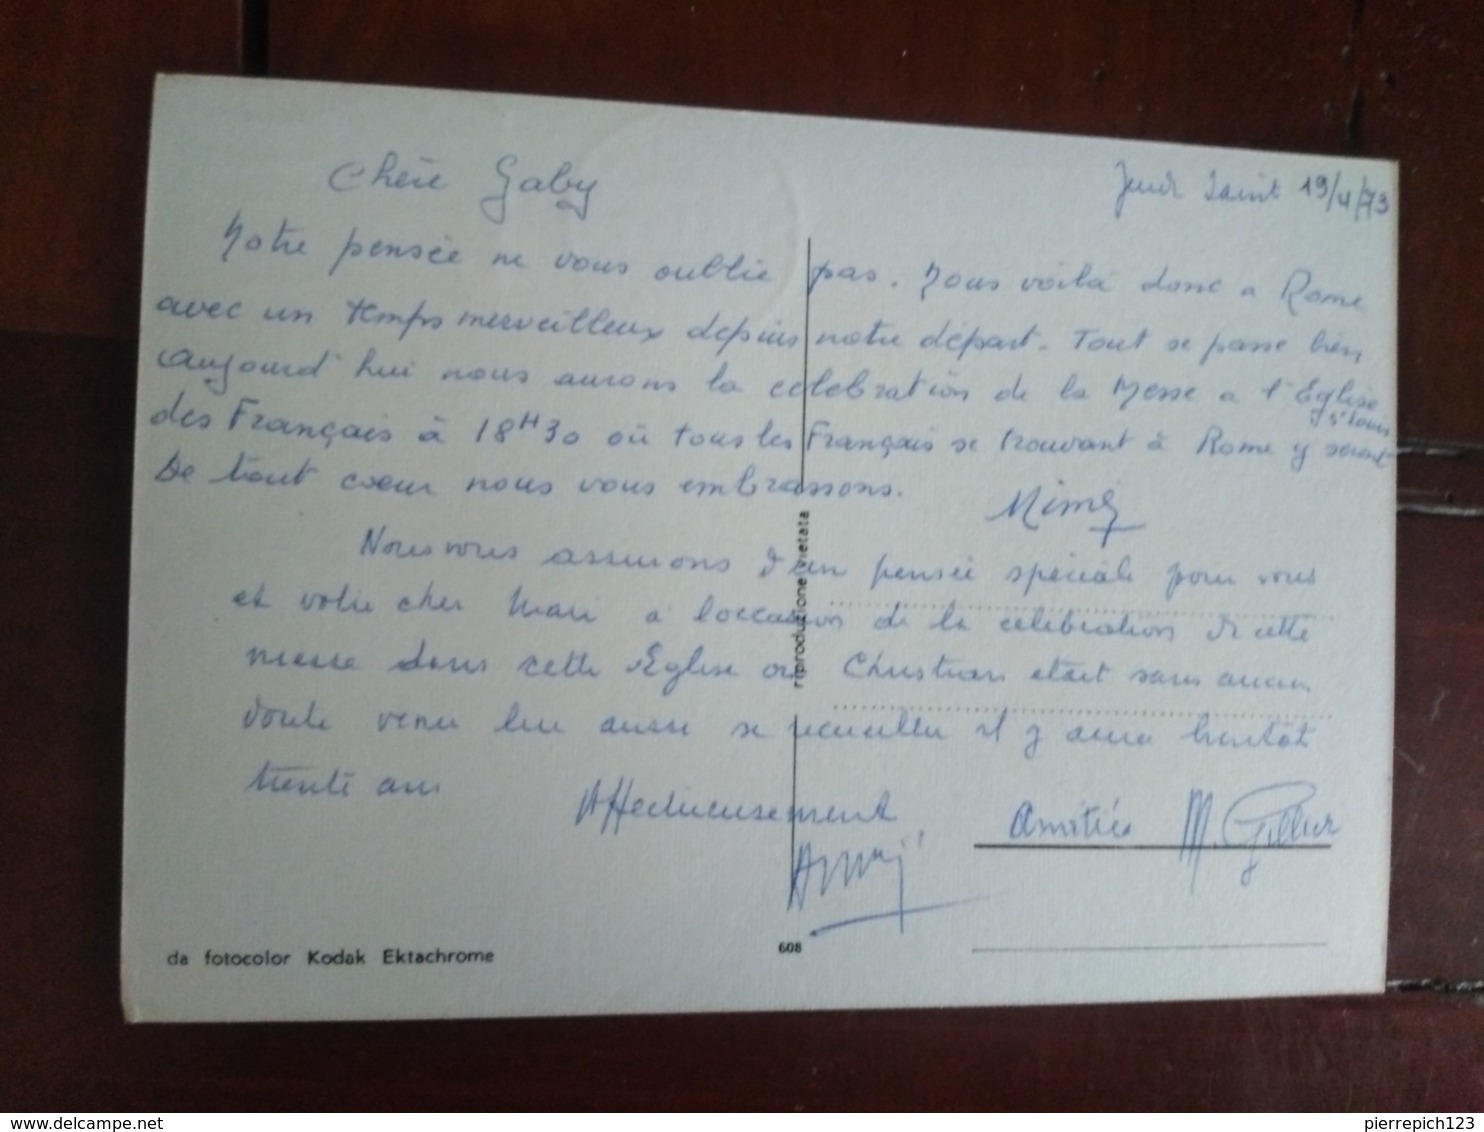 Jeudi Saint 19/4/73
Chère Gaby
Notre pensée ne vous oublie pas. Nous voilà donc a Rome
avec un temps merveilleux depuis notre départ. Tout se passe bien
aujourd'hui nous aurons la celebration de la Messe a l'Eglise
St Louis
des Français à 18H30 où tous les Français se trouvant à Rome y seront
De tout coeur nous vous embrassons.
Mimi
Nous vous assurons d'un pensée spéciale pour vous
et votre cher Mari a l'occasion de la celebration de cette
messe dans cette Eglise où Christian etait sans aucun
doute venu lui aussi se recueillir il y aura bientôt
trente ans
Affectueusement
Amitiés M.
riproduzione vietata
da fotocolor Kodak Ektachrome
608
delcampe.net
pierrepich123